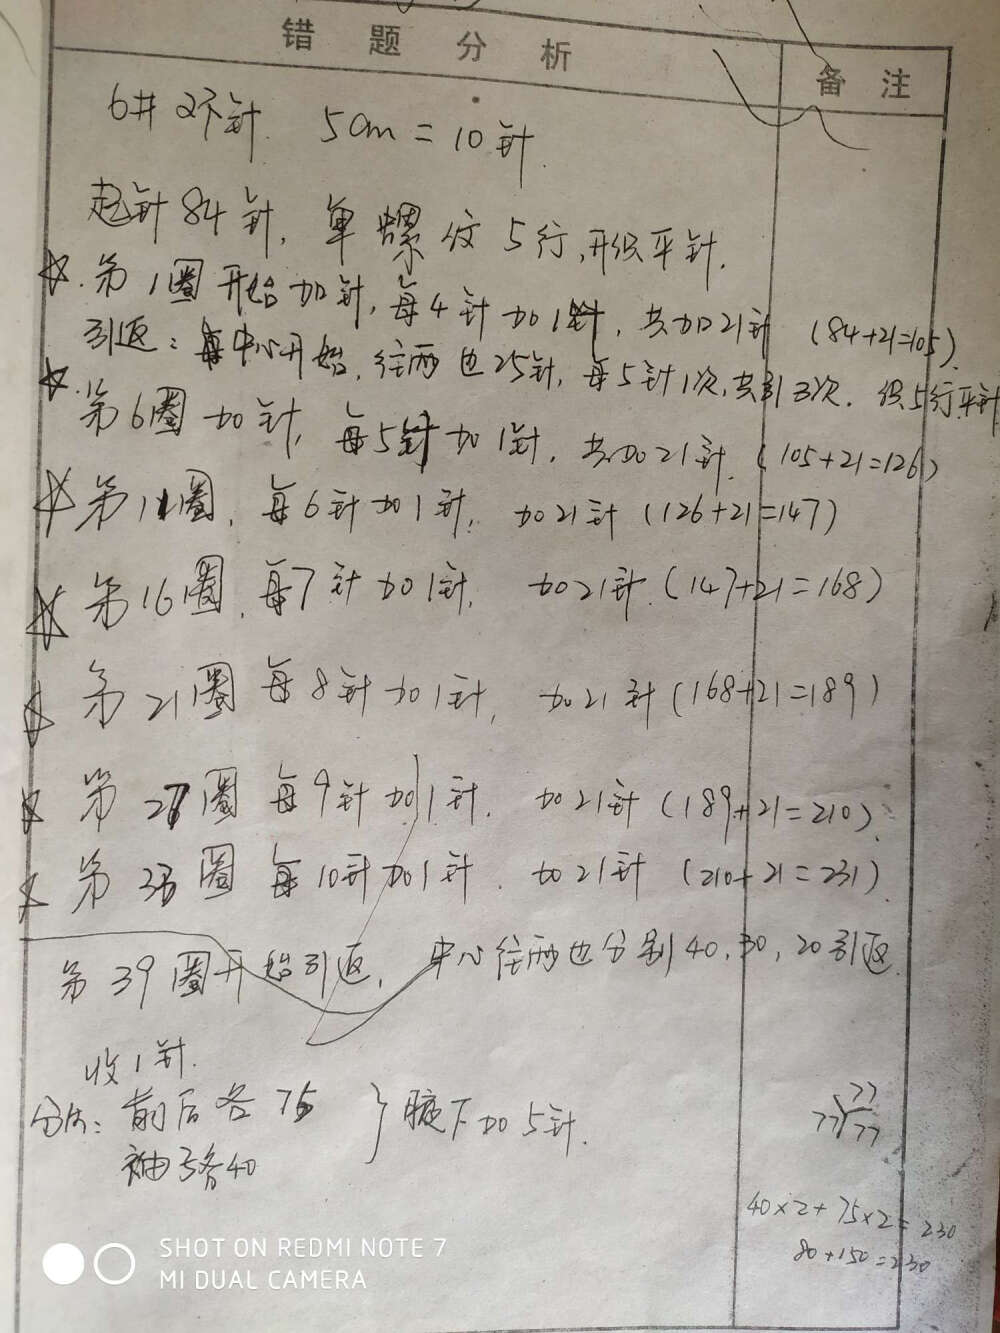 错题分析
备注
6# 2下针 5cm=10针
起针84针，单螺纹5行，开织平针.
☆.第1圈开始加针，每4针加1针，共加21针 (84+21=105).
引返：每中心开始，往两边25针，每5针1次，共引3次. 织5行平针
☆.第6圈加针，每5针加1针，共加21针.(105+21=126)
☆第11圈，每6针加1针， 加21针(126+21=147)
☆第16圈，每7针加1针， 加21针.(147+21=168)
☆第21圈 每8针加1针， 加21针(168+21=189)
☆第27圈 每9针加1针. 加21针(189+21=210).
☆第33圈 每10针加1针. 加21针 (210+21=231)
第39圈开始引返，中心往两边分别40,30,20引返.
收1针.
分片：前后各75
袖子各40
}腋下加5针.
77
77 77
40×2+75×2=230
80+150=230
SHOT ON REDMI NOTE 7
MI DUAL CAMERA